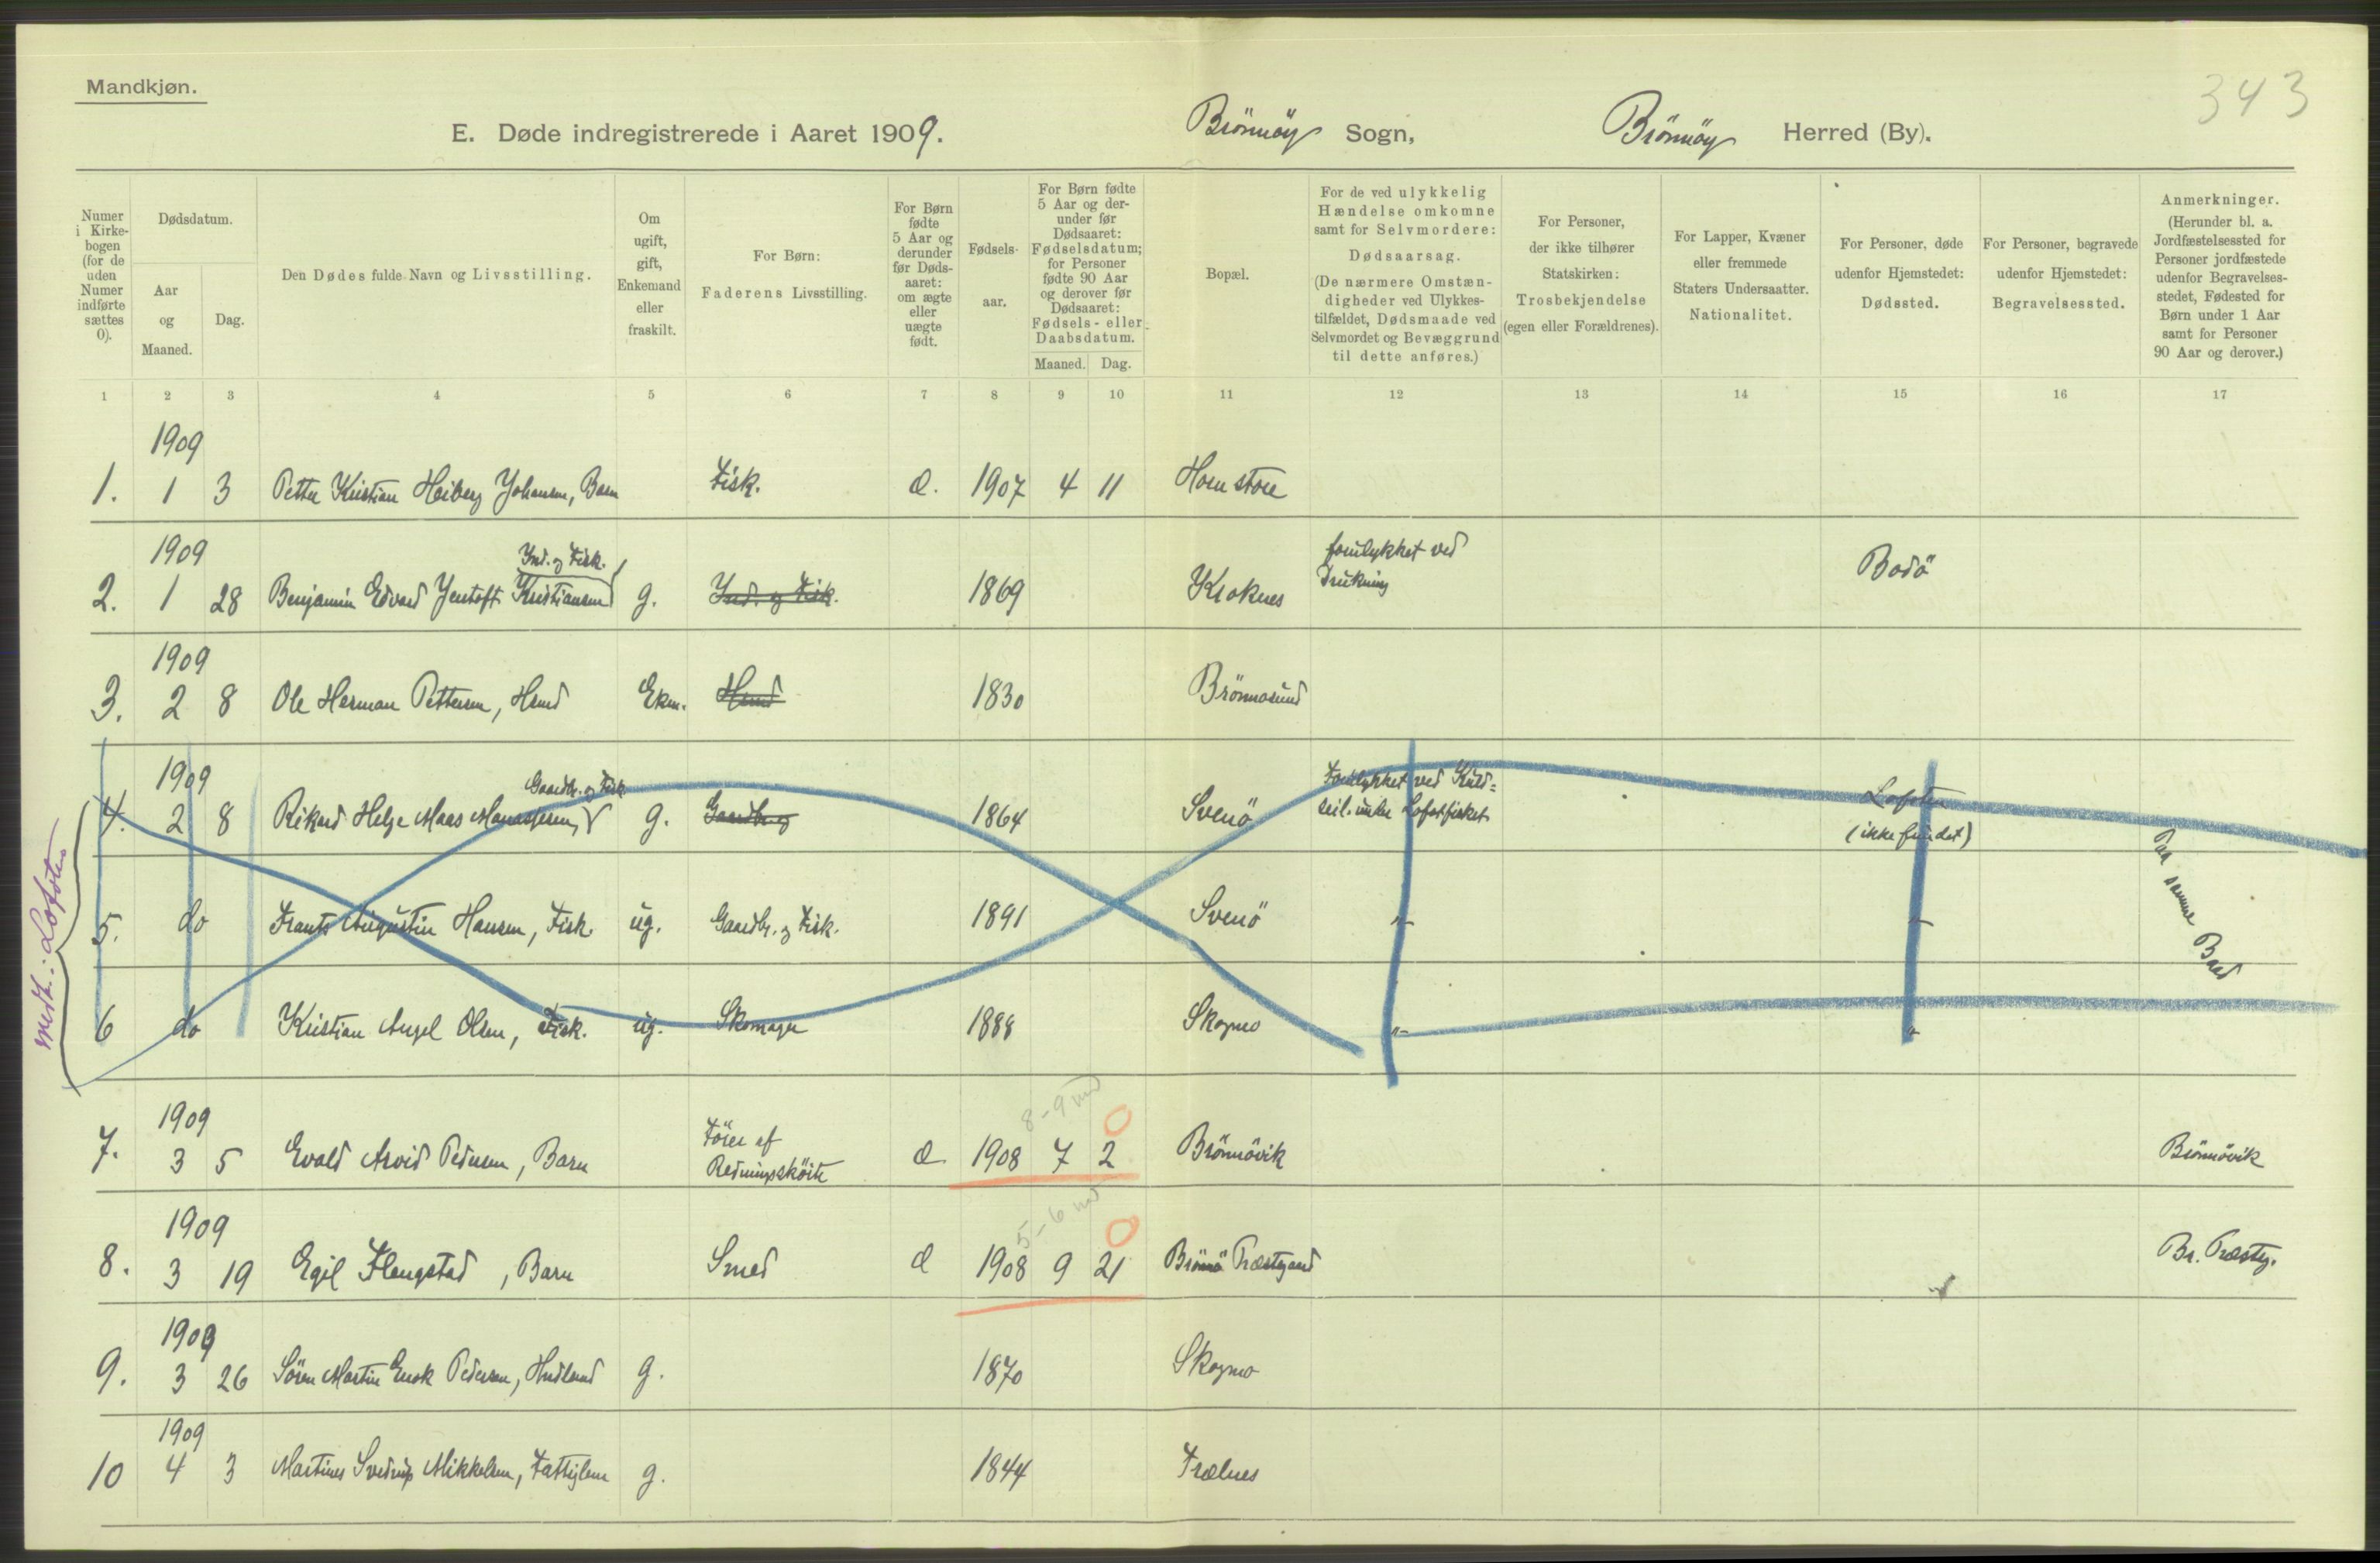 Mandkjøn.
343
E. Døde indregistrerede i Aaret 1909. Brönnöy Sogn, Brönnöy Herred (By).
Numer i Kirkebogen (for de uden Numer indførte sættes 0).
Dødsdatum.
Aar og Maaned.
Dag.
Den Dødes fulde Navn og Livsstilling.
Om ugift, gift, Enkemand eller fraskilt.
For Børn: Faderens Livsstilling.
For Børn fødte 5 Aar og derunder før Dødsaaret: om ægte eller uægte født.
Fødselsaar.
For Børn fødte 5 Aar og derunder før Dødsaaret: Fødselsdatum; for Personer fødte 90 Aar og derover før Dødsaaret: Fødsels- eller Daabsdatum.
Maaned. Dag.
Bopæl.
For de ved ulykkelig Hændelse omkomne samt for Selvmordere: Dødsaarsag. (De nærmere Omstændigheder ved Ulykkestilfældet, Dødsmaade ved Selvmordet og Bevæggrund til dette anføres.)
For Personer, der ikke tilhører Statskirken: Trosbekjendelse (egen eller Forældrenes).
For Lapper, Kvæner eller fremmede Staters Undersaatter. Nationalitet.
For Personer, døde udenfor Hjemstedet: Dødssted.
For Personer, begravede udenfor Hjemstedet: Begravelsessted.
Anmerkninger. (Herunder bl. a. Jordfæstelsessted for Personer jordfæstede udenfor Begravelsesstedet, Fødested for Børn under 1 Aar samt for Personer 90 Aar og derover.)
1 2 3 4 5 6 7 8 9 10 11 12 13 14 15 16 17
1909
1. 1 3 Petter Kristian Heiberg Johansen, Barn Fisk. Æ. 1907 4 11 Horn store
1909 Ind. og Fisk. forulykket ved
2. 1 28 Benjamin Edvard Jentoft Kristiansen g. Ind. og Fisk. 1869 Kloknes Drukning Bodö
1909
3. 2 8 Ole Herman Pettersen, Hmd Ekm. Hmd 1830 Brönnosund
1909 Gaardbr. og Fisk. Forulykket ved Kuld-
4. 2 8 Rikard Helge Maas Manassesen, g. Gaardbrug 1864 Svenö seil. under Lofotfisket Lofoten
(ikke fundet)
5. do Frants Augustin Hansen, Fisk. ug. Gaardbr. og Fisk. 1891 Svenö -"- -"-
Paa samme Baad
6 do Kristian Angel Olsen, Fisk. ug. Skomager 1888 Skogmo -"- "
medt. Lofoten
8-9 md
1909 Förer af 0
7. 3 5 Evald Arvid Pedersen, Barn Redningsköite Æ 1908 7 2 Brönnövik Brönnövik
5-6 md
1909 0
8. 3 19 Egil Flengstad, Barn Smed Æ 1908 9 21 Brönnö Præstegaard Br. Præstg.
1909
9. 3 26 Sören Martin Enok Pedersen, Hudlund g. 1870 Skogmo
1909
10 4 3 Martines Svedrup Mikkelsen, Fattiglem g. 1844 Trælnes